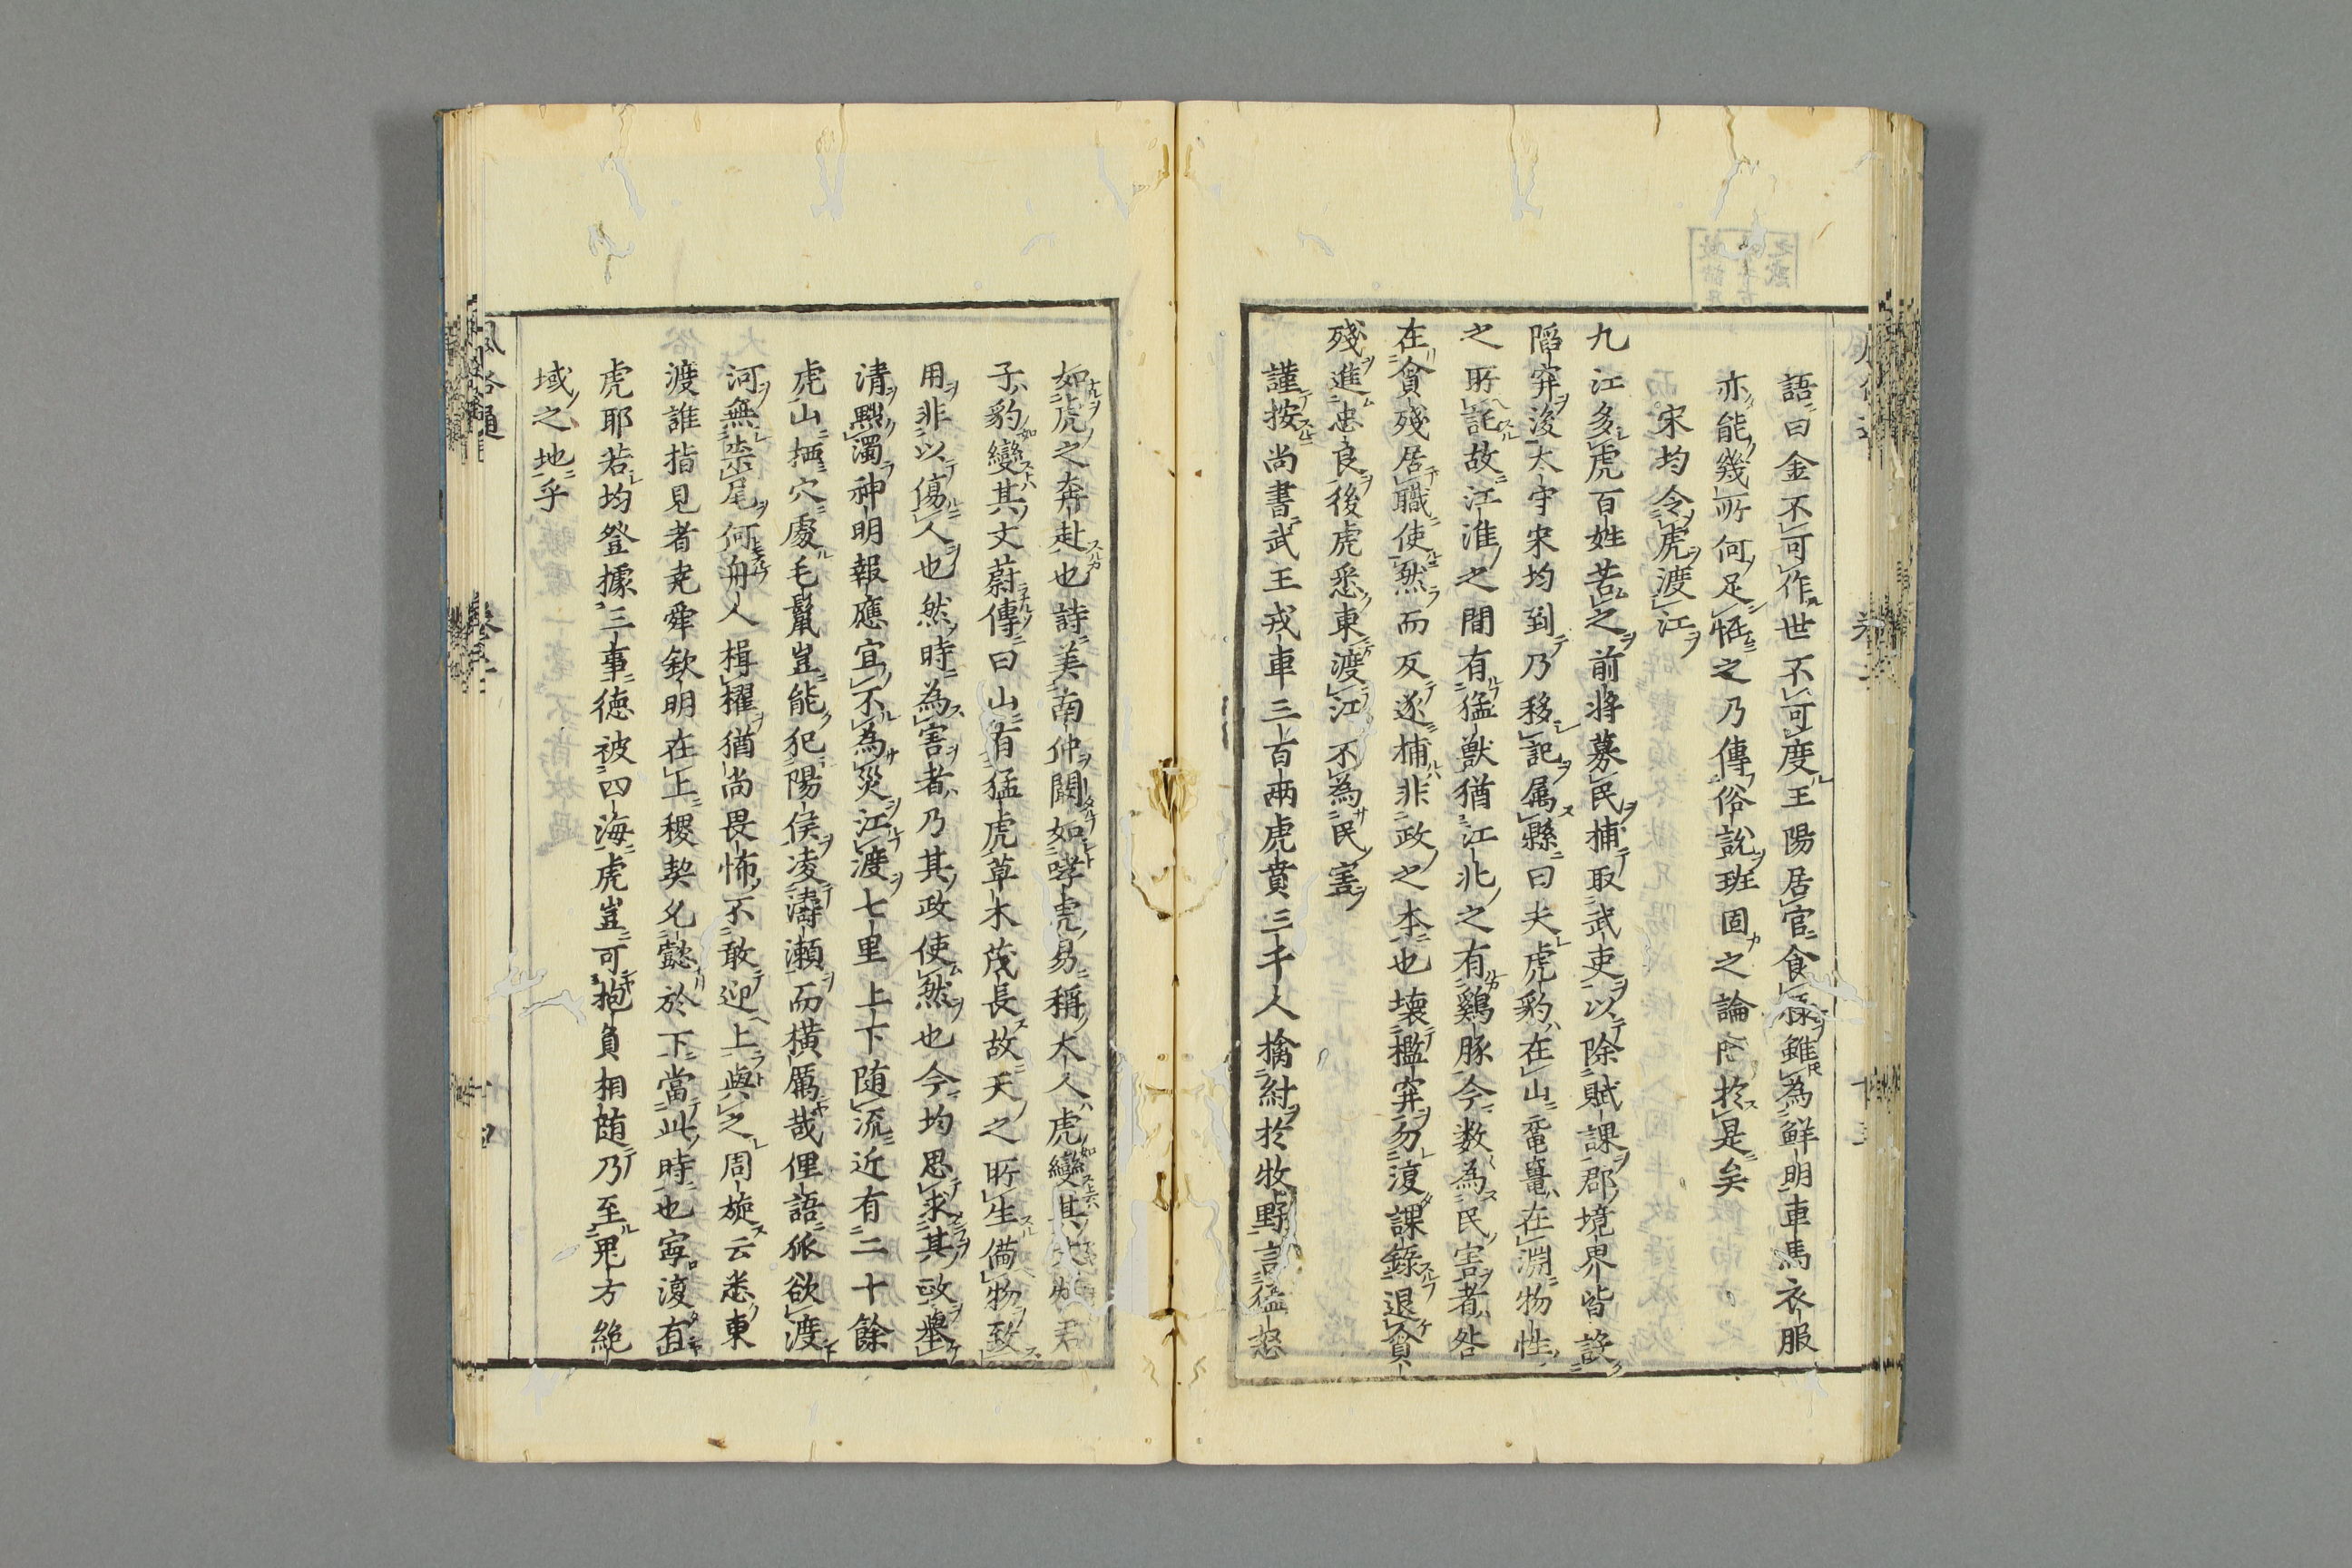 語曰金不可作世不可度王陽居官食祿雖為鮮明車馬衣服
亦能幾所何足怪之乃傳俗說班固之論陋於是矣
宋均令虎渡江
九江多虎百姓苦之前將募民捕取武吏以除賦課郡境界皆設
陷穽後太守宋均到乃移記属縣曰夫虎豹在山黿鼉在淵物性
之所託故江淮之間有猛獸猶江北之有鷄豚今数為民害者咎
在貪殘居職使然而反逐捕非政之本也壊檻穽勿復課錄退貪
殘進忠良後虎悉東渡江不為民害
謹按尚書武王戎車三百兩虎賁三千人擒紂於牧野言猛怒
如虎之奔赴也詩美南仲闞如哮虎易稱大人虎變其文炳君
子豹變其文蔚傳曰山有猛虎草木茂長故天之所生備物致
用非以傷人也然時為害者乃其政使然也今均思求其政舉
清黜濁神明報應宜不為災江渡七里上下随流近有二十餘
虎山栖穴處毛鬣豈能犯陽侯凌濤瀬而橫厲哉俚語狐欲渡
河無柰尾何舟人楫櫂猶尚畏怖不敢迎上與之周旋云悉東
渡誰指見者尭舜欽明在上稷契允懿於下當此時也寧復有
虎耶若均登據三事德被四海虎豈可抱負相随乃至鬼方絶
域之地乎
風俗通
卷二
十四